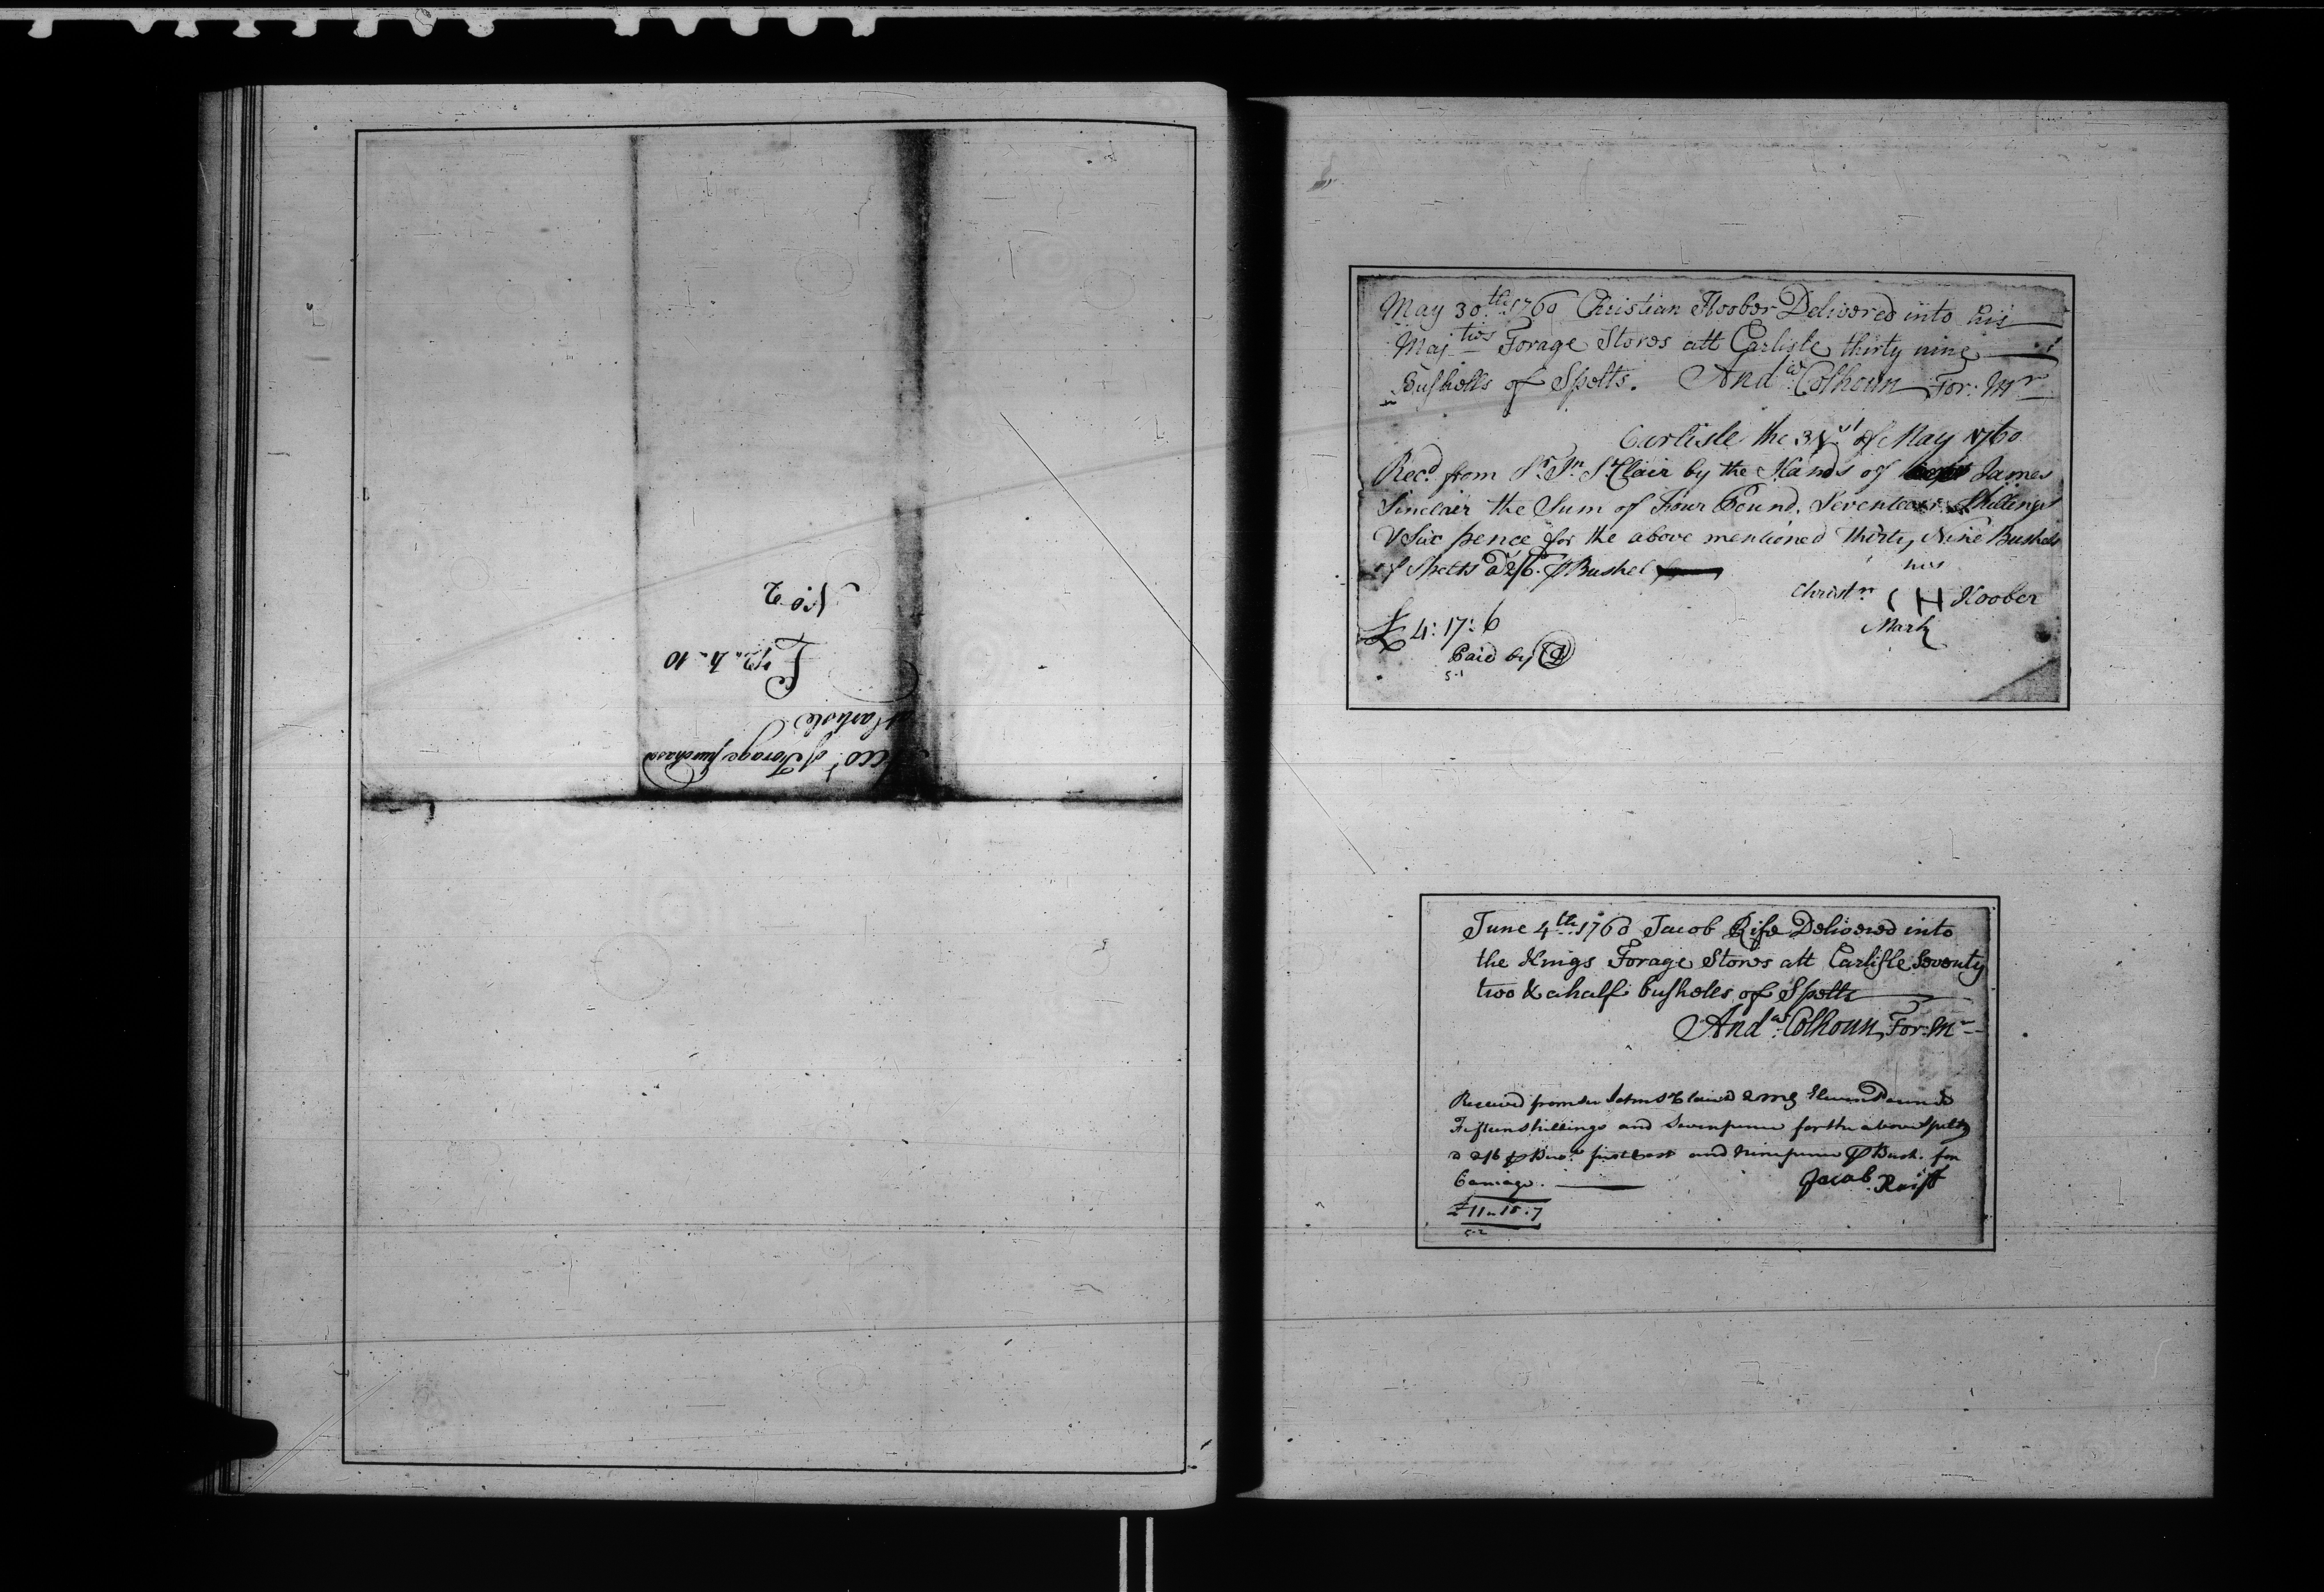 Acco.t of Forage purchased
at Carlisle
No. 2
May 30.th 1760 Christian Hoober Delivered into his
Maj.ties Forage Stores att Carlisle thirty nine
Bushells of Spelts. And.w Colhoun For: Mr
Carlisle the 31.st of May 1760
Rec.d from Sr. Jn. St Clair by the Hands of James
Sinclair the Sum of Four Pound, Seventeen Shillings
& Six pence for the above mentioned Thirty Nine Bushels
of Spelts a 2/6. ⅌ Bushel
his
Christn. C H Hoober
Mark
£ 4: 17: 6
Paid by
5-1
June 4th. 1760 Jacob Rife Delivered into
the Kings Forage Stores att Carlisle Seventy
two & a half bushells of Spelts
And.w Colhoun, For. Mr
Received from Sir John St Clair B & Q M G Eleven Pounds
Fifteen shillings and Seven pence for the above Spelts
a 2/6 ⅌ Bus.l first Cost and nine pence ⅌ Bush. for
Carriage.
Jacob Reiff
£ 11 " 15 : 7
5-2